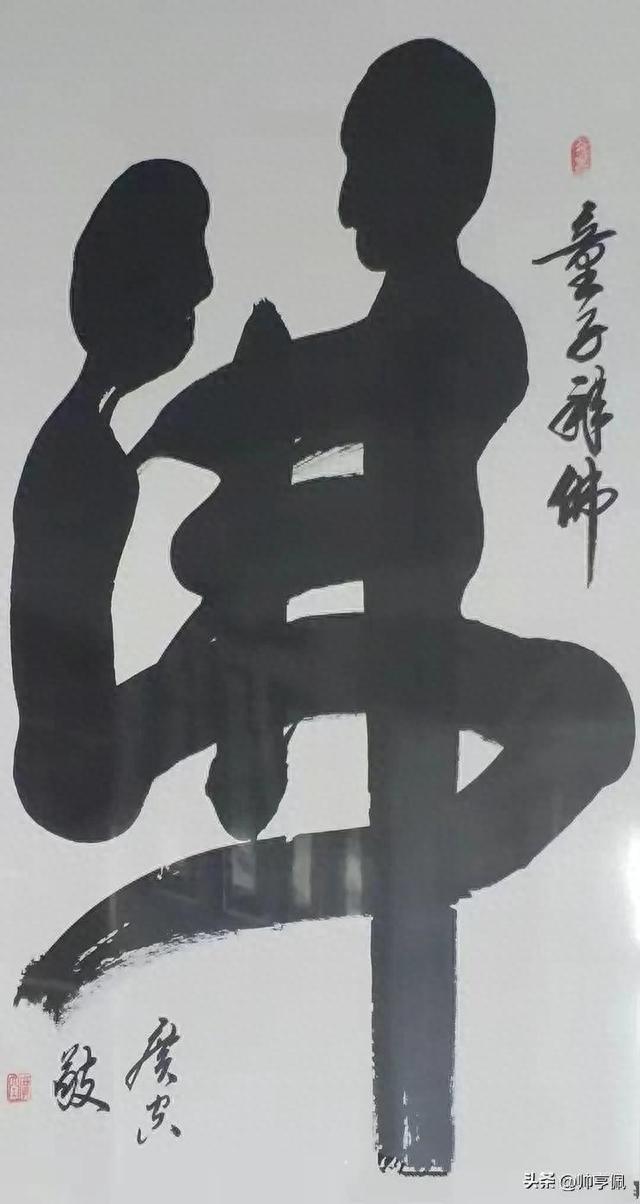 佛
童子拜佛
敬
头条 @帅亨佩